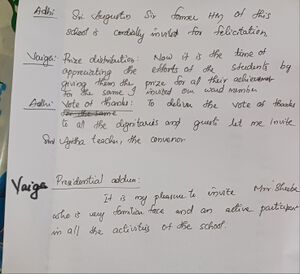 Adhi: Sri Augustin Sir former HM of this
school is cordially invited for felicitation
Vaiga: Prize distribution: Now it is the time of
appreciating the efforts of the students by
giving them the prize for all their achievement
for the same I invited our ward member
Adhi: Vote of thanks: To deliver the vote of thanks
for the same
to all the dignitaries and guests let me invite
Smt teacher, the convenor
Vaiga Presidential address:
It is my pleasure to invite Mrs Sheeba
who is very familiar face and an active participant
in all the activities of the school.